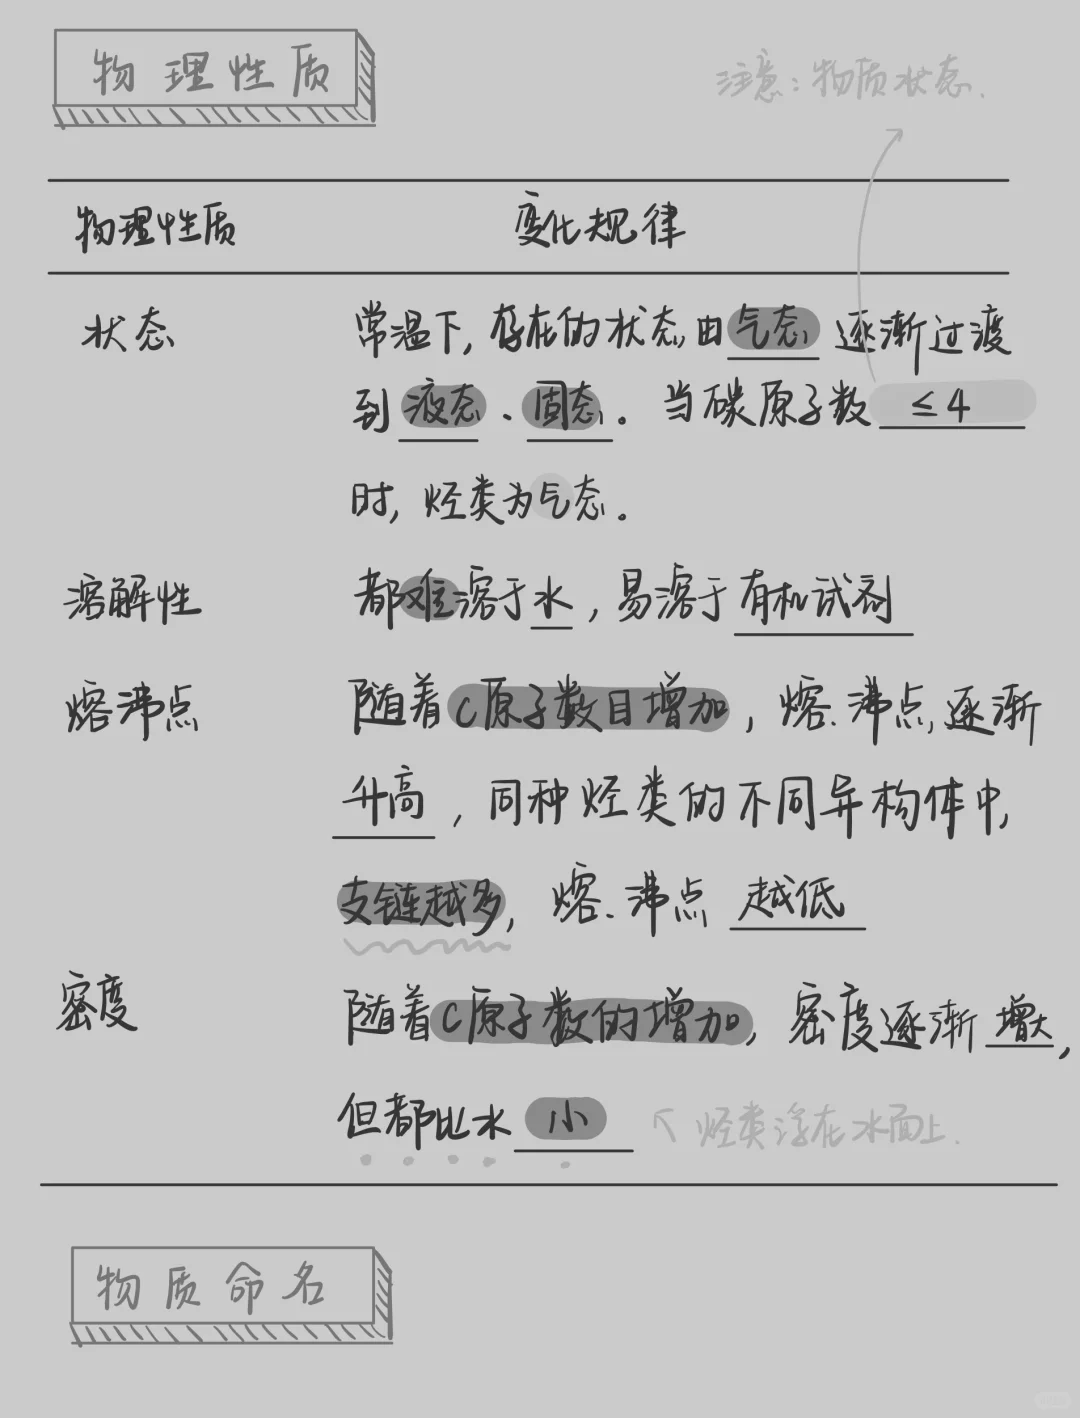 物理性质
注意：物质状态.
物理性质 变化规律
状态 常温下, 存在的状态, 由气态 逐渐过渡
到 液态、固态。当碳原子数 ≤4
时, 烃类为气态。
溶解性 都难溶于水, 易溶于有机试剂
熔沸点 随着C原子数目增加, 熔.沸点, 逐渐
升高, 同种烃类的不同异构体中,
支链越多, 熔.沸点 越低
密度 随着C原子数的增加, 密度逐渐 增大,
但都比水 小 ↖ 烃类浮在水面上.
物质命名